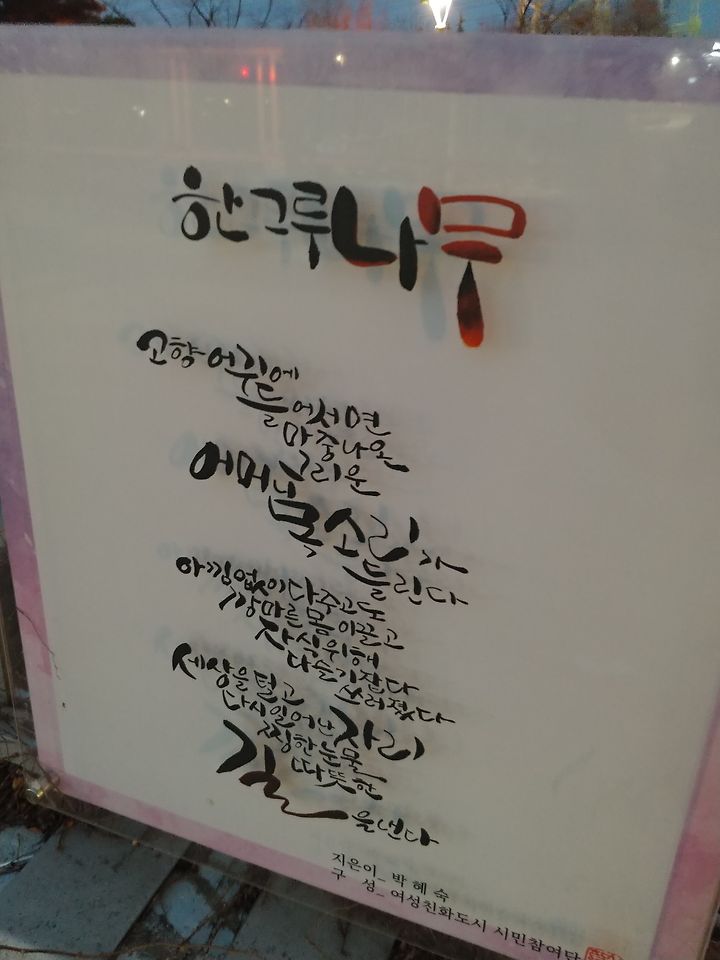 한그루나무
고향어귀에
들어서면
마중나온
그리운
어머니
목소리가
들린다
아낌없이다주고도
깡마른몸이끌고
자식위해
다슬기잡다
쓰러졌다
세상을털고
다시일어난자리
찡한눈물
따뜻한
길을낸다
지은이_박혜숙
구 성_여성친화도시 시민참여단